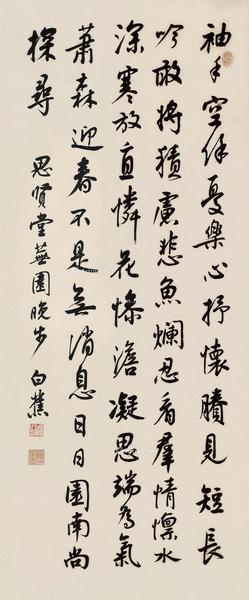 袖手空餘憂樂心抒懷賸見短長
吟敢將積慮悲魚爛忍看羣情懔水
深寒放直憐花慘澹凝思端為氣
蕭森迎春不是無消息日日園南尚
探尋 思賢堂蕪園晚步 白蕉